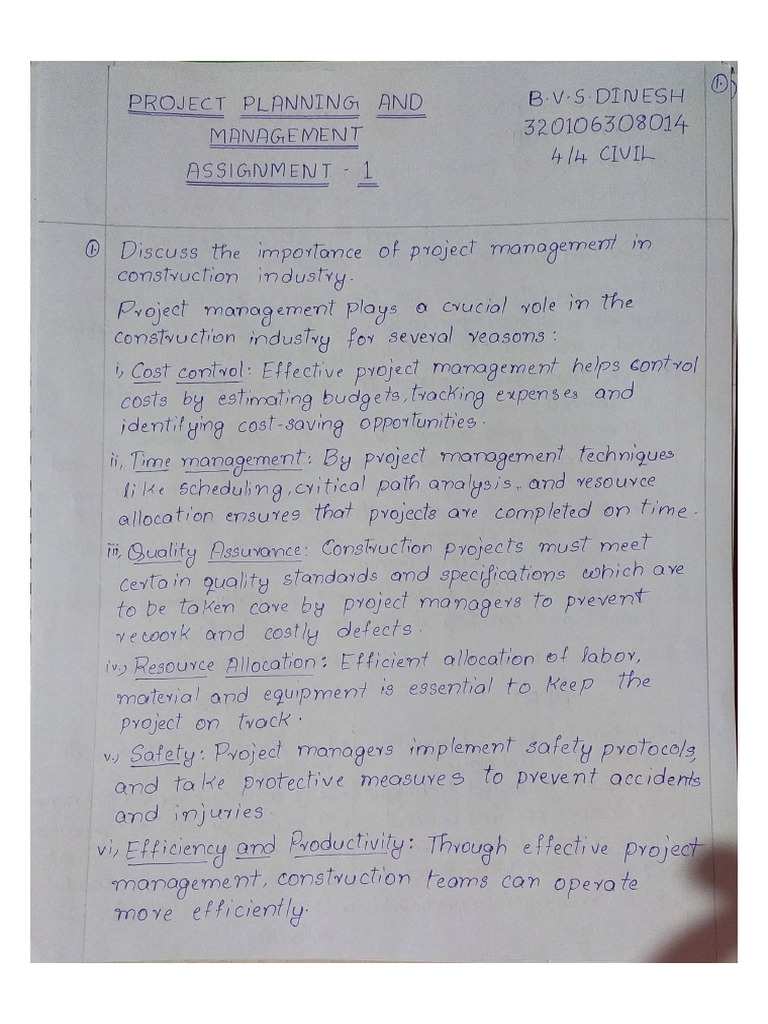 1.
PROJECT PLANNING AND
MANAGEMENT
ASSIGNMENT - 1
B.V.S.DINESH
320106308014
4/4 CIVIL
1. Discuss the importance of project management in
construction industry.
Project management plays a crucial role in the
construction industry for several reasons:
i, Cost control: Effective project management helps control
costs by estimating budgets, tracking expenses and
identifying cost-saving opportunities.
ii, Time management: By project management techniques
like scheduling, critical path analysis, and resource
allocation ensures that projects are completed on time.
iii, Quality Assurance: Construction projects must meet
certain quality standards and specifications which are
to be taken care by project managers to prevent
rework and costly defects.
iv,) Resource Allocation: Efficient allocation of labor,
material and equipment is essential to keep the
project on track.
v.) Safety: Project managers implement safety protocols,
and take protective measures to prevent accidents
and injuries.
vi, Efficiency and Productivity: Through effective project
management, construction teams can operate
more efficiently.